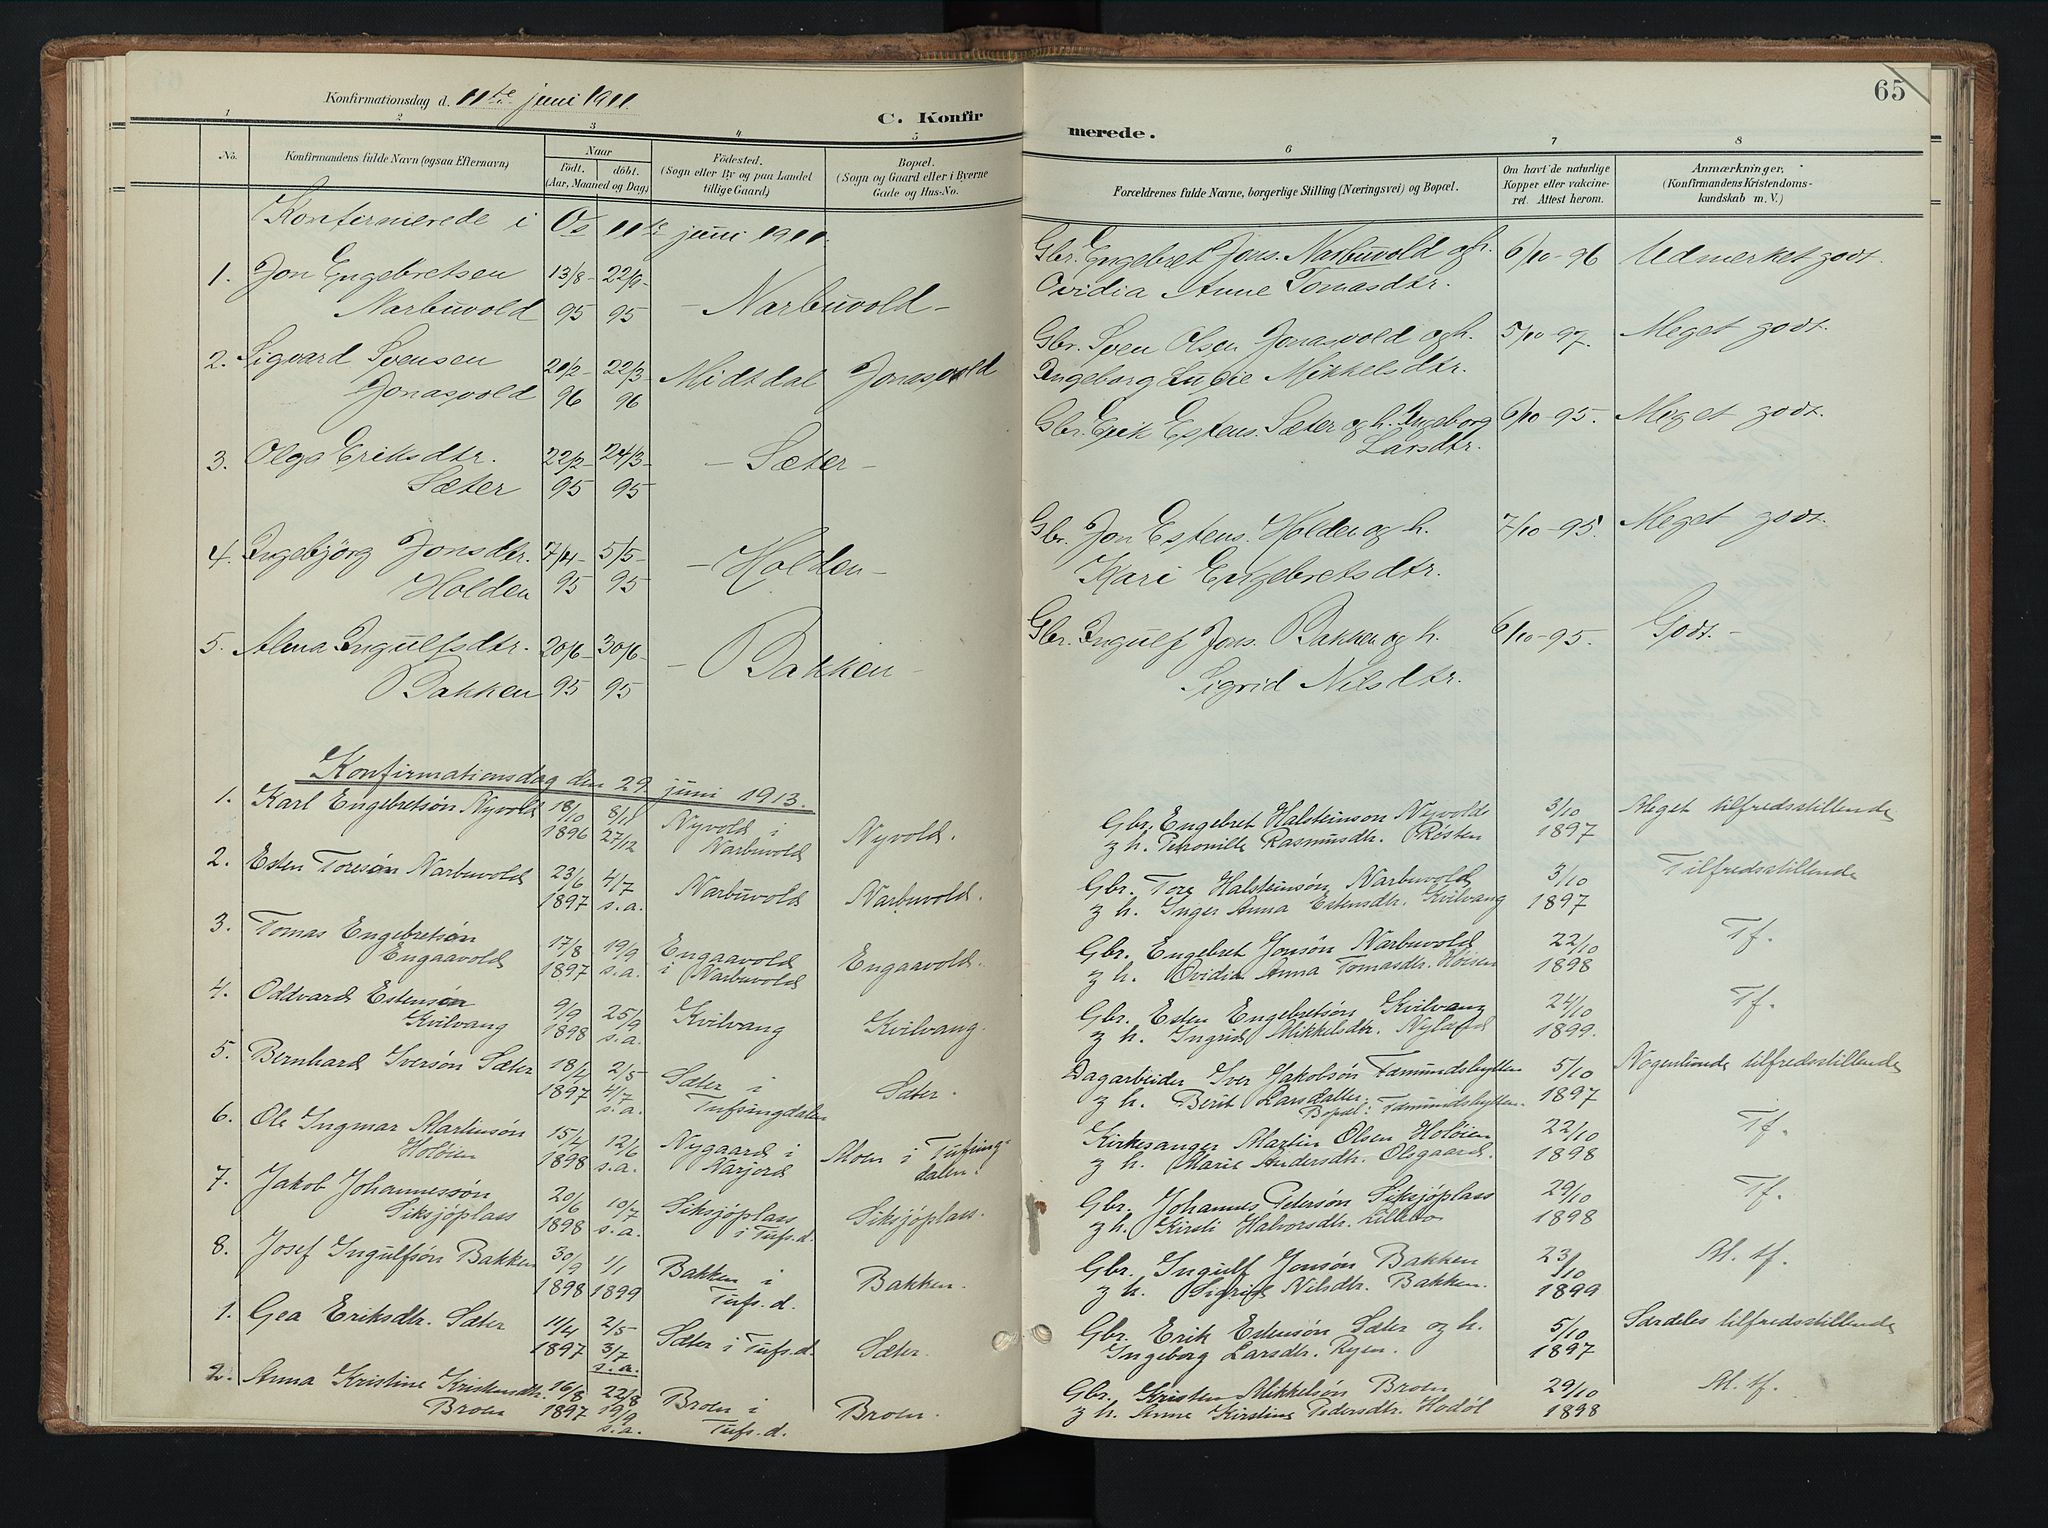 65
Konfirmationsdag d. 11te juni 1911.
C. Konfirmerede.
1 2 3 4 5 6 7 8
No.
Konfirmandens fulde Navn (ogsaa Efternavn)
Naar
födt. döbt.
(Aar, Maaned og Dag)
Födested.
(Sogn eller By og paa Landet
tillige Gaard)
Bopæl.
(Sogn og Gaard eller i Byerne
Gade og Hus-No.
Forældrenes fulde Navne, borgerlige Stilling (Næringsvei) og Bopæl.
Om havt de naturlige
Kopper eller vakcine-
ret. Attest herom.
Anmærkninger.
(Konfirmandens Kristendoms-
kundskab m. V.)
Konfirmerede i Os 11te juni 1911.
1. Jon Engebretsen 13/8- Gbr. Engebret Jons. Narbuvold og h. 6/10-96 Udmerket godt.
Narbuvold 95 95 - Narbuvold - Ovidia Anne Tomasdtr.
2. Sigvard Svensen 22/3- Midtdal Jonasvold Gbr. Sven Olsen Jonasvold og h. 5/10-97. Meget godt.
Jonasvold 96 96 Ingeborg Mikkelsdtr.
3. Olga Eriksdtr. 22/2- 24/3- - Sæter - Gbr. Erik Estens. Sæter og h. Ingeborg 6/10-95. Meget godt.
Sæter 95 95 Larsdtr.
4. Ingebjörg Jonsdtr. 7/4- 5/5- - Holden - Gbr. Jon Estens. Holden og h. 7/10-95. Meget godt.
Holden 95 95 Kari Engebretsdtr.
5. Alma Ingulfsdtr. 20/6- 30/6- - Bakken - Gbr. Ingulf Jons. Bakken og h. 6/10-95. Godt.-
Bakken 95 95 Sigrid Nilsdtr.
Konfirmationsdag den 29. juni 1913.
1. Karl Engebretsøn Nyvold 18/10 8/11 Nyvold i Nyvold. Gbr. Engebret Halsteinsøn Nyvold 3/10 Meget tilfredsstillende
1896 27/12 Narbuvold g h. Petronille Rasmusdtr. Røsten 1897
2. Esten Toresøn Narbuvold 23/6 4/7 Narbuvold Narbuvold. Gbr. Tore Halsteinsøn Narbuvold 3/10 Tilfredsstillende
1897 s.a. g h. Inger Anna Estensdtr. Kvilvang 1897
3. Tomas Engebretsøn 17/8 19/9 Engaavold Engaavold. Gbr. Engebret Jonsøn Narbuvold 22/10 Tf.
Engaavold 1897 s.a. i Narbuvold g h. Ovidia Anna Tomasdtr. Høisen 1898
4. Oddvard Estensøn 9/9 25/9 Kvilvang Kvilvang. Gbr. Esten Engebretsøn Kvilvang 24/10 Tf.
Kvilvang 1898 s.a. g h. Ingrid Mikkelsdtr. Nyland 1899.
5. Bernhard Iversøn Sæter 18/4 2/5 Sæter i Sæter. Dagarbeider Iver Jakobsøn Fæmundshytten 5/10 Nogenlunde tilfredsstillende
1897 4/7 s.a. Tufsingdalen g h. Berit Larsdatter. 1897
Bopæl: Fæmundshytten.
6. Ole Ingmar Martinsøn 15/4 12/6 Nygaard i Moen i Tufsing- Kirkesanger Martin Olsen Holøien 22/10 Tf.
Holøien 1898 s.a. Narjord dalen. g h. Marie Andersdtr. Olsgaard. 1898
7. Jakob Johannessøn 20/6 10/7 Siksjöplass Siksjöplass. Gbr. Johannes Petersøn Siksjöplass 29/10 Tf.
Siksjöplass 1898 s.a. i Tufs.d. g h. Kirsti Halvorsdtr. Lillebo 1898
8. Josef Ingulfsøn Bakken 30/9 1/1 Bakken i Bakken. Gbr. Ingulf Jonsøn Bakken 23/10 M. tf.
1898 1899 Tufs.d. g h. Sigrid Nilsdtr. Bakken. 1899
1. Gea Eriksdtr. Sæter 11/4 2/5 Sæter i Tufs.d. Sæter. Gbr. Erik Estensøn Sæter og h. 5/10 Særdeles tilfredsstillende
1897 3/7 s.a. Ingeborg Larsdtr. Ryen. 1897
2. Anna Kristine Kristensdtr. 16/8 22/8 Broen i Broen. Gbr. Kristen Mikkelsøn Broen 29/10 M. tf.
Broen 1897 19/9 s.a. Tufs.d. g h. Anne Kirstine Pedersdtr. Hodøl 1898